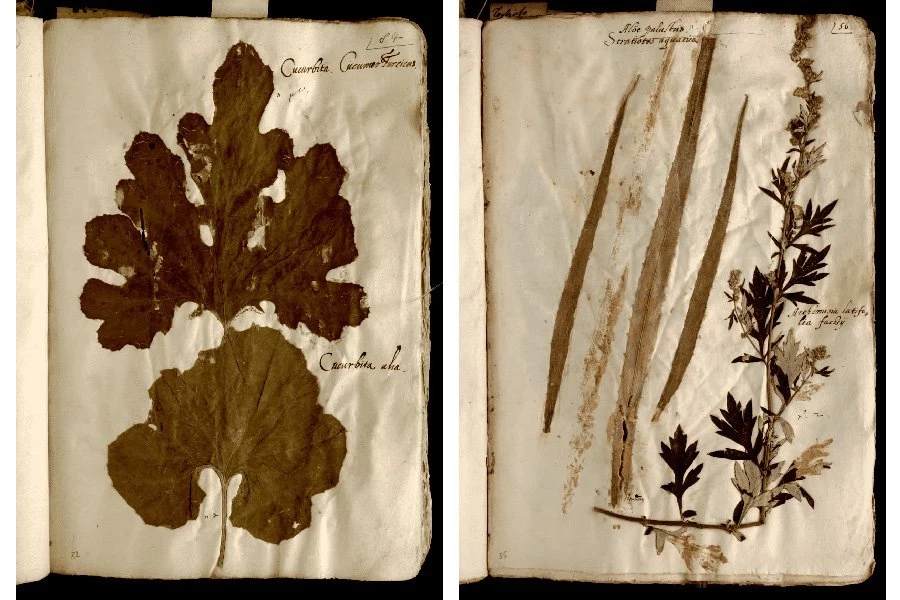 84
Cucurbita. Cucumer Turcicus
Cucurbita alia.
72
Aloe palustris
Stratiotes aquatica
56
Arthemisia latifo,
lia fuchsÿ
55